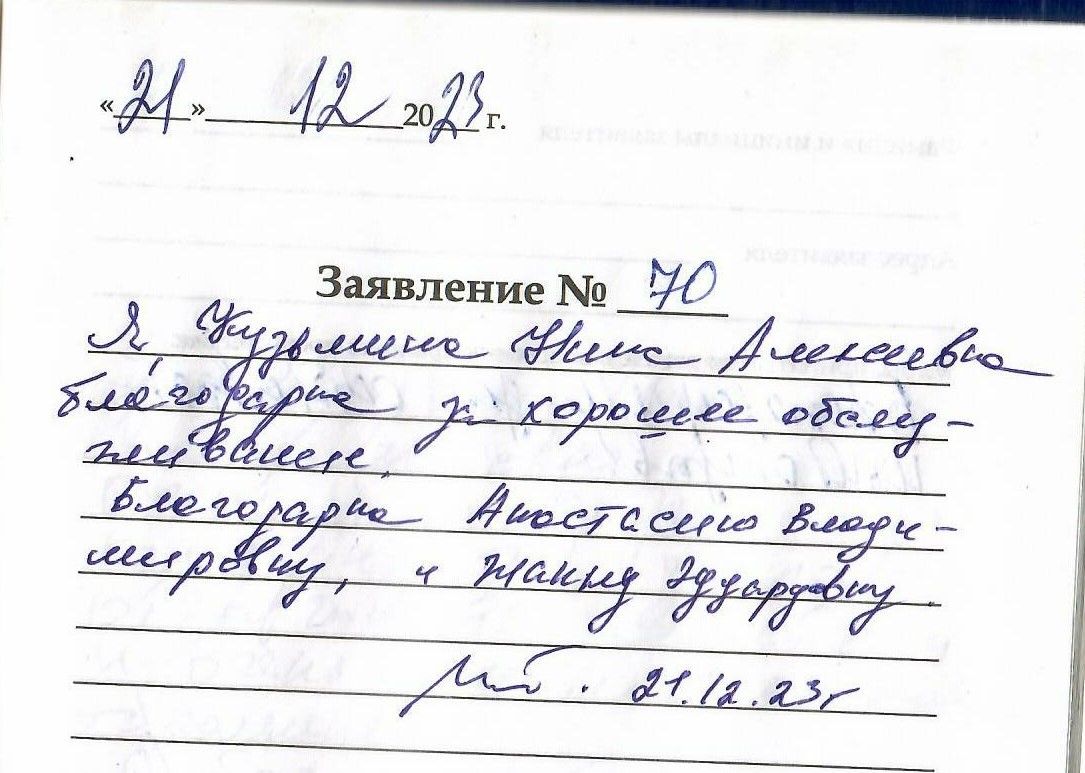 «21» 12 2023 г.
Заявление № 70
Я, Кузьмина Нина Алексеевна
благодарна за хорошее обслу-
живание.
Благодарна Анастасию Влади-
мировну, и Жанну Эдуардовну.
21.12.23г